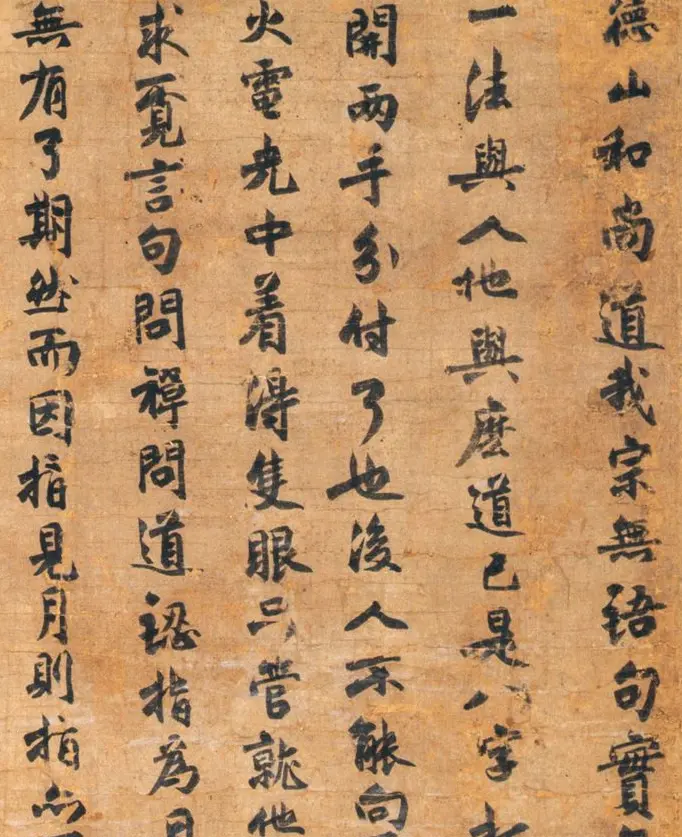 德山和尚道我宗無語句實
一法與人他與麽道已是八字打
開兩手分付了也後人不能向
火電光中着得隻眼只管就他
求覓言句問禪問道認指為月
無有了期然而因指見月則指亦